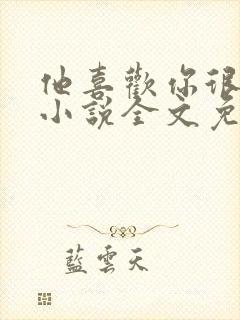 他喜歡你很
小說全文免
藍雲天